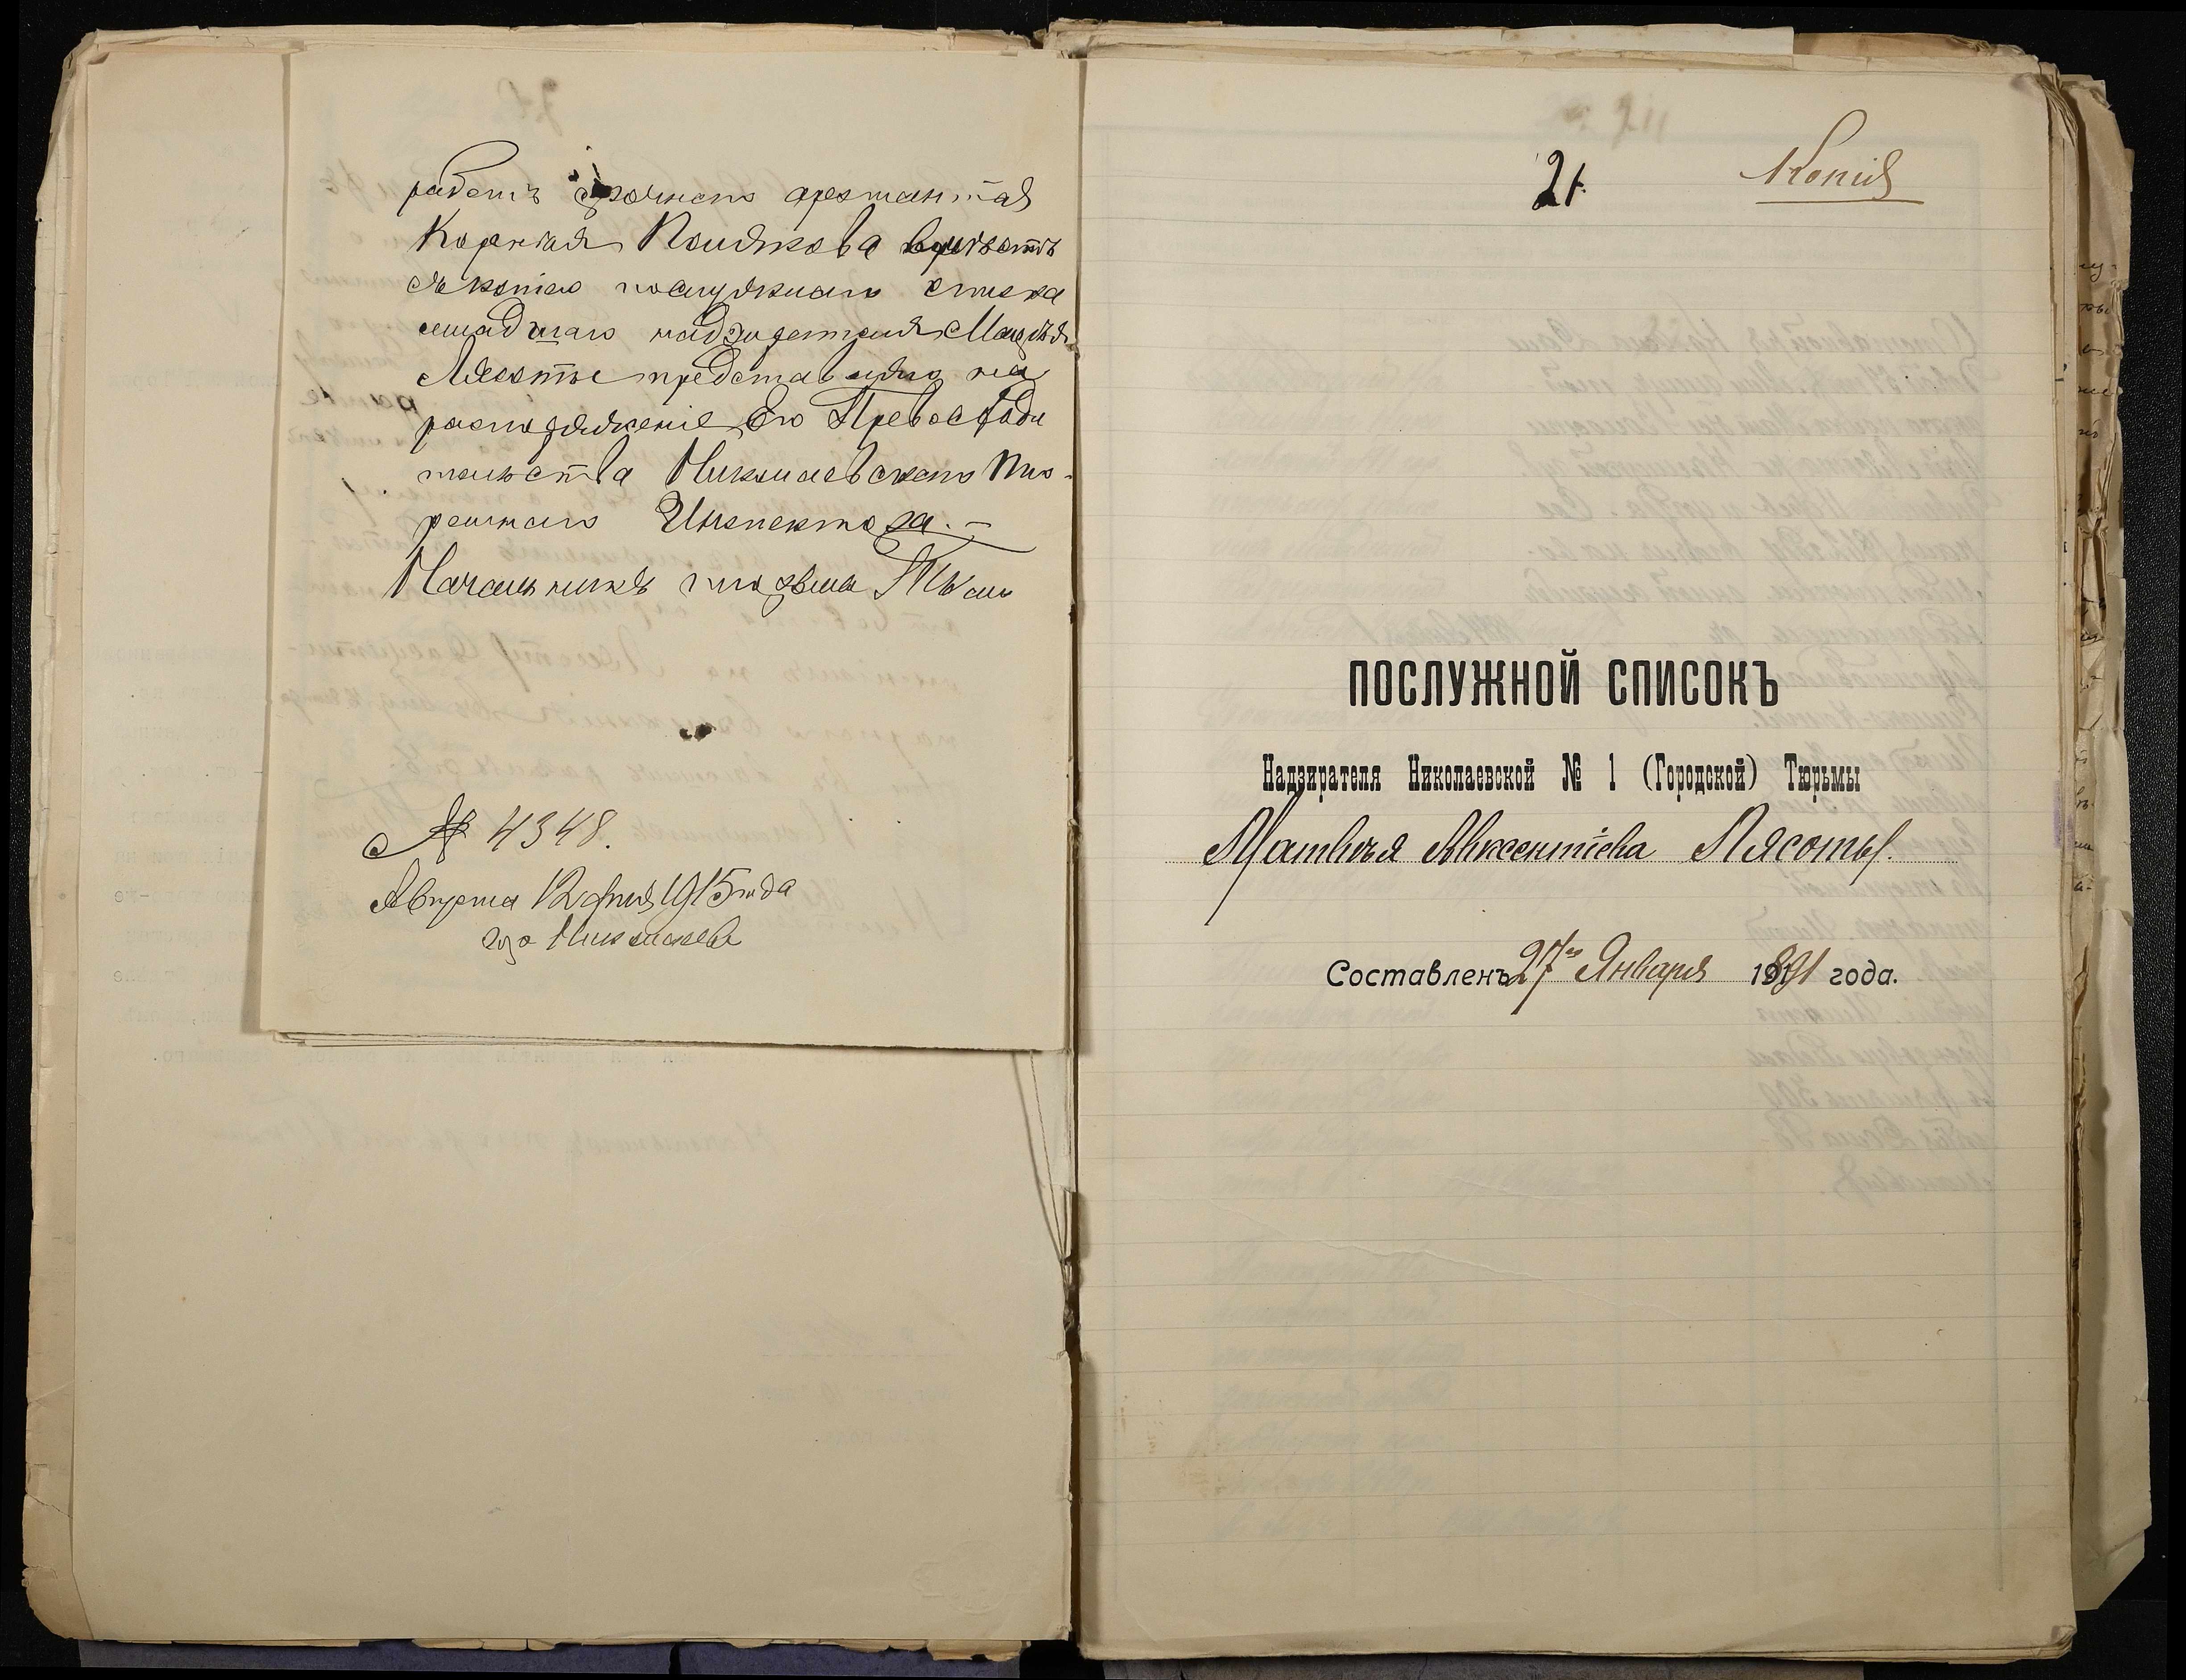 работъ срочнаго арестанта
Корнѣя Полякова вмѣстѣ
съ копіею послужнаго списка
младшаго надзирателя Матвѣя
Лясоты представляю на
распоряженіе Его Превосходи
тельства Николаевскаго Тю-
ремнаго Инспектора.—
Начальникъ тюрьмы
№ 4348.
Августа 12 дня 1915 года
гор Николаевъ
21.
Копія
ПОСЛУЖНОЙ СПИСОКЪ
Надзирателя Николаевской № 1 (Городской) Тюрьмы
Матвѣя Авксентіева Лясоты.
Составленъ 27го Января 1891 года.